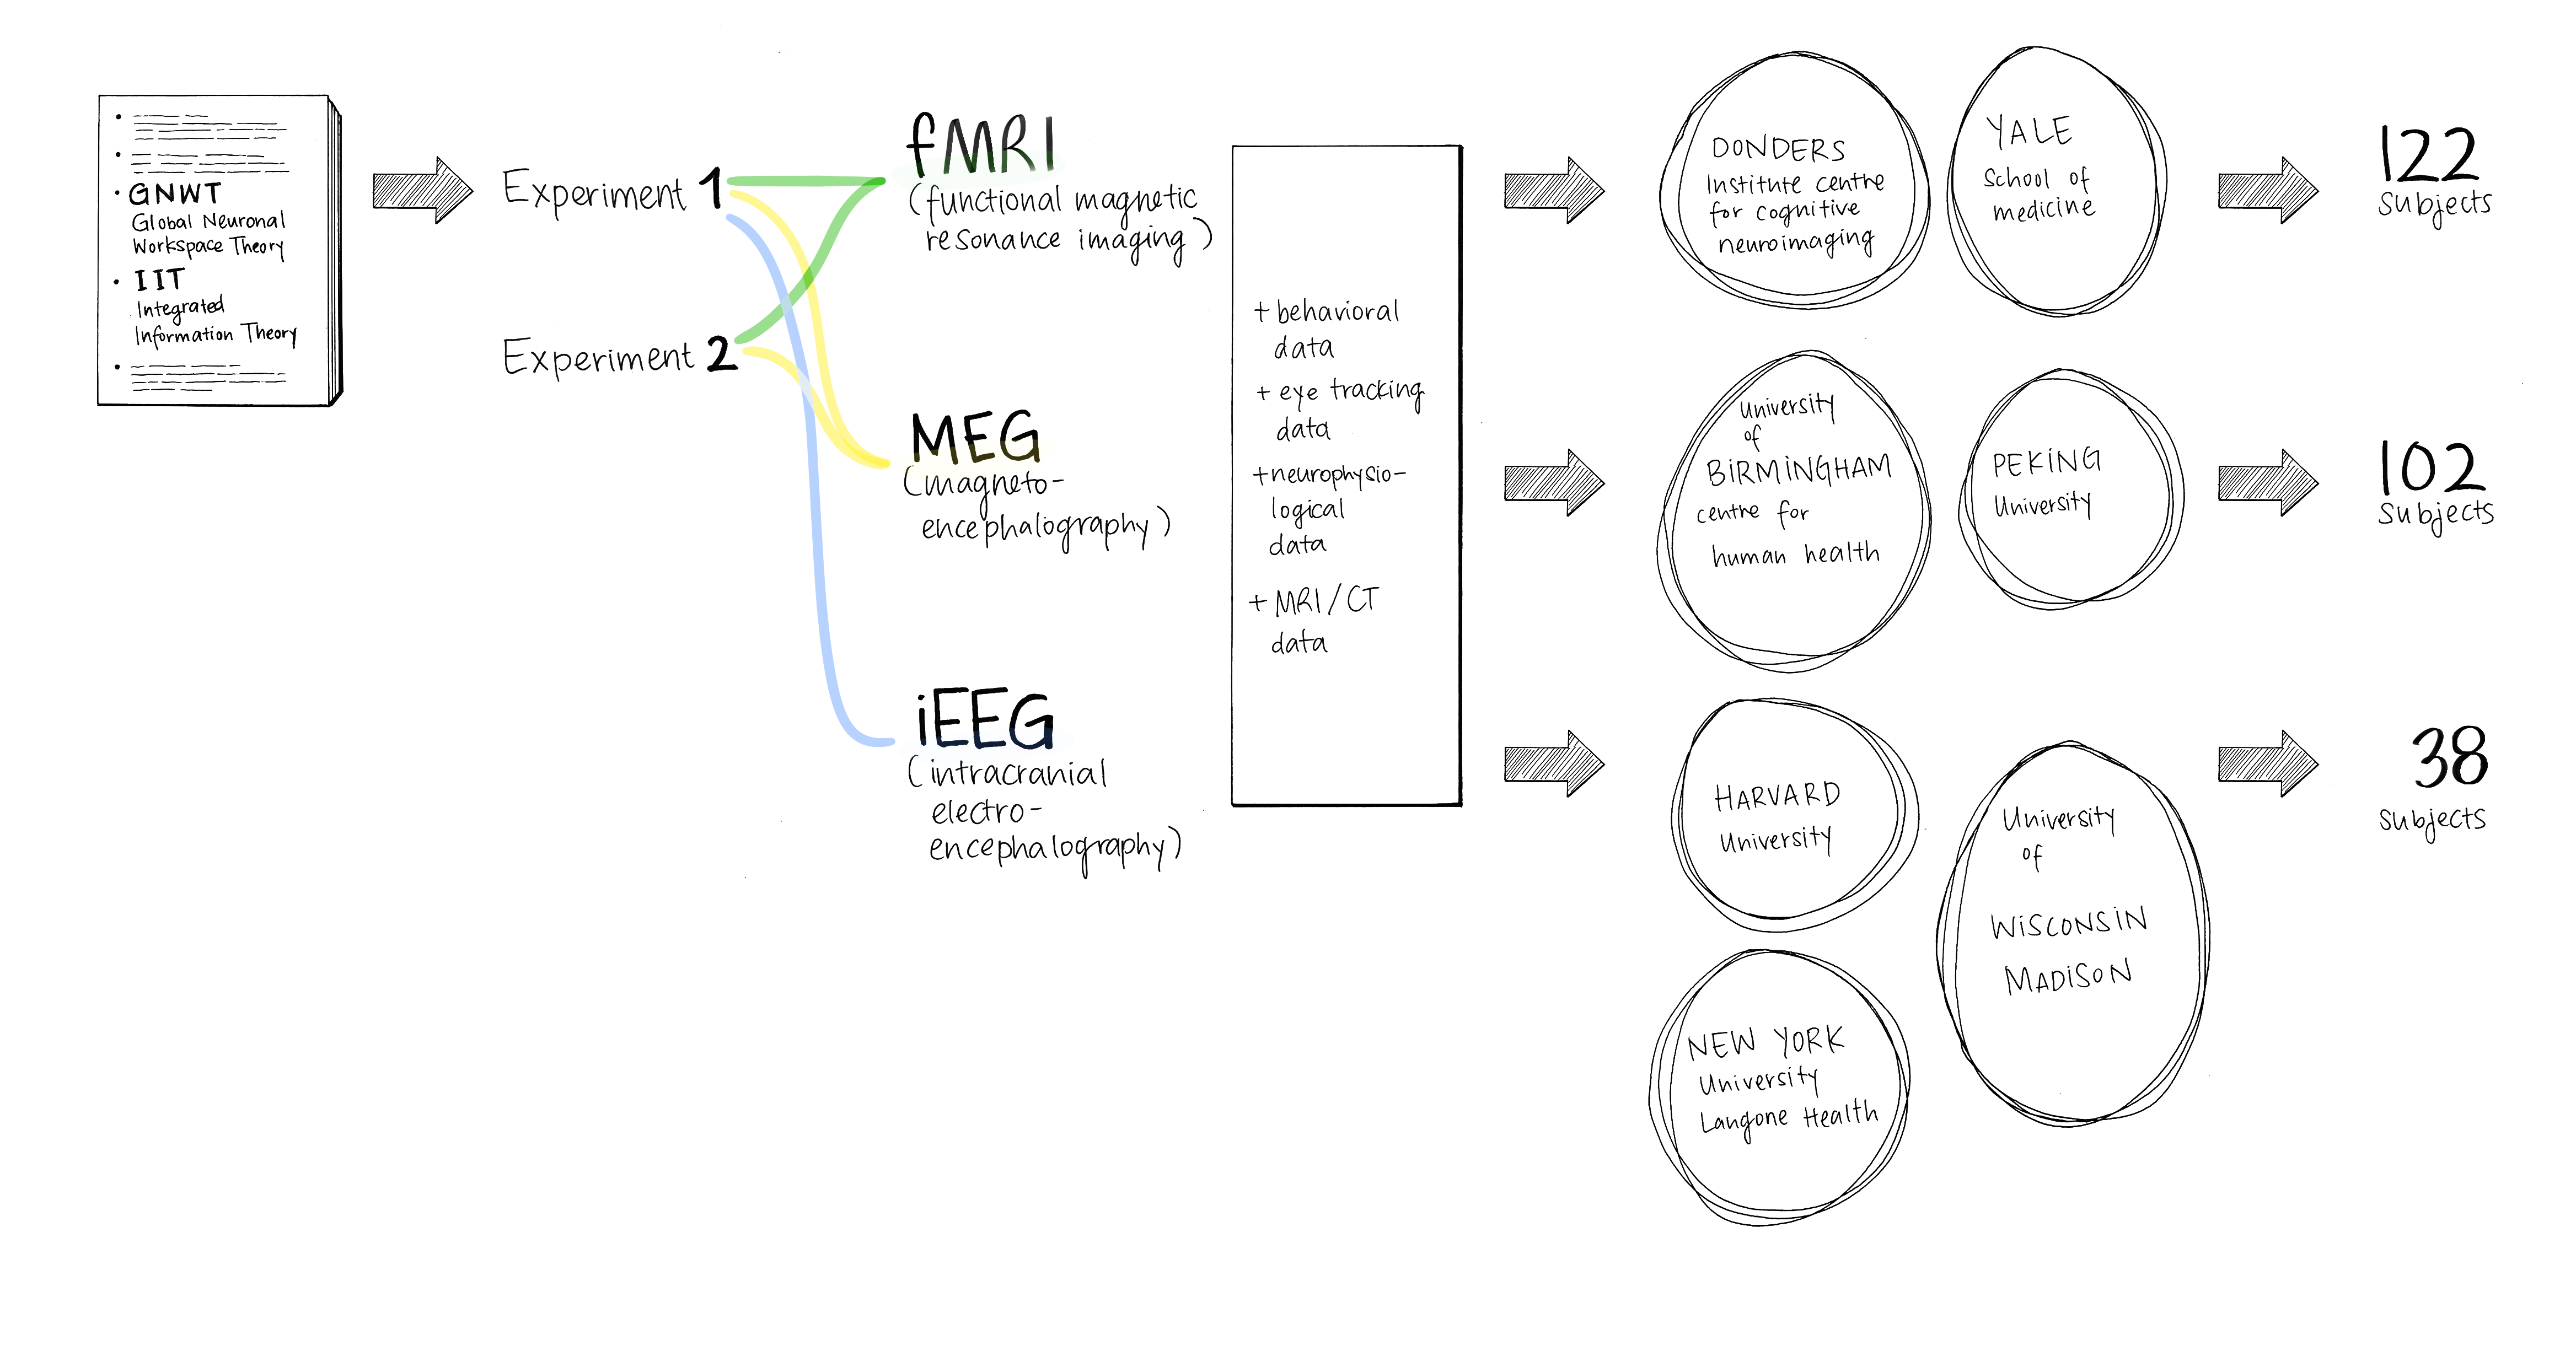 • GNWT
Global Neuronal
Workspace Theory
• IIT
Integrated
Information Theory
Experiment 1
Experiment 2
fMRI
(functional magnetic
resonance imaging)
MEG
(magneto-
encephalography)
iEEG
(intracranial
electro-
encephalography)
+ behavioral
data
+ eye tracking
data
+ neurophysio-
logical
data
+ MRI/CT
data
DONDERS
Institute centre
for cognitive
neuroimaging
YALE
School of
medicine
122
subjects
University
of
BiRMiNGHAM
centre for
human health
PEKiNG
University
102
subjects
HARVARD
University
University
of
WiSCONSiN
MADiSON
NEW YORK
University
Langone Health
38
subjects